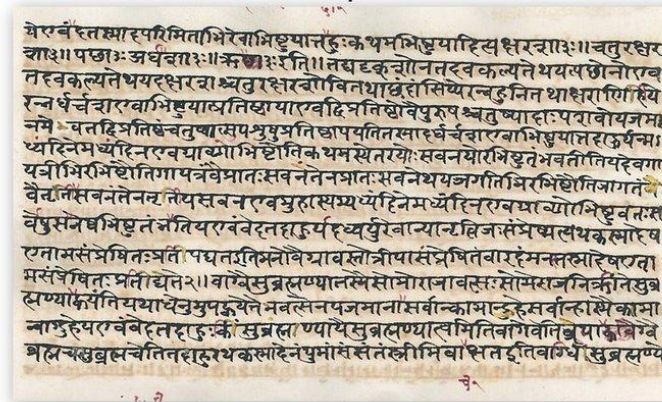 य एवं वेद तस्मादपरिमिताभिरेवाभिष्टुयात्तदाहुः कथमभिष्टुयादित्यक्षरशा३ः॥ चतुरक्षर
शा३ः॥ पच्छा३ः अर्धर्चशा३ः॥ ऋक्शा३ः इति॥ तद्यदृक्शो न तदवकल्पतेथ यत्पच्छो नो एव
तदवकल्पतेथ यदक्षरशश्चतुरक्षरशो वि तथा छंदांसि लुप्येरन्बहूनि तथाक्षराणि हीये
रन्नर्धर्चश एवाभिष्टुयात्प्रतिष्ठाया एव द्विप्रतिष्ठो वै पुरुषश्चतुष्पादाः पशवो यजमा
नमेव तद्द्विप्रतिष्ठं चतुष्पात्सु पशुषु प्रतिष्ठापयति तस्मादर्धर्चश एवाभिष्टुयात्तदाहुर्यन्म
ध्यंदिने मध्यंदिन एव ग्राव्णोभिष्टौति कथमस्येतरयोः सवनयोरभिष्टुतं भवतीति यदेव गा
यत्रीभिरभिष्टौति गायत्रं वै प्रातःसवनं तेन प्रातःसवनेथ यज्जगतीभिरभिष्टौति जागतं
वै तृतीयसवनं तेन तृतीयसवन एवमु हास्य मध्यंदिने मध्यंदिन एव ग्राव्णोभिष्टुवतः स
र्वेषु सवनेष्वभिष्टुतं भवति य एवं वेद तदाहुर्यदध्वर्युरेवान्यानृत्विजः संप्रेष्यत्यथ कस्मादेष
एतामसंप्रेषितः प्रतिपद्यत इति मनो वै ग्रावस्तोत्रीयासंप्रेषितं वा इदं मनस्तस्मादेष एता
मसंप्रेषितः प्रतिपद्यते२॥ वाग्वै सुब्रह्मण्या तस्यै सोमो राजा वत्सः सोमे राजनि क्रीते सुब्र
ह्मण्यामाह्वयंति यथा धेनुमुपह्वयेत्तेन वत्सेन यजमानाय सर्वान्कामान्दुहे सर्वान्हास्मै कामा
न्वाग्दुहे य एवं वेद तदाहुः किं सुब्रह्मण्यायै सुब्रह्मण्यात्वमिति वागेवेति ब्रूयाद्वाग्वै
ब्रह्म च सुब्रह्म चेति तदाहुरथ कस्मादेनं पुमांसं संतं स्त्रीमिवाचक्षत इति वाग्घि सुब्रह्मण्ये